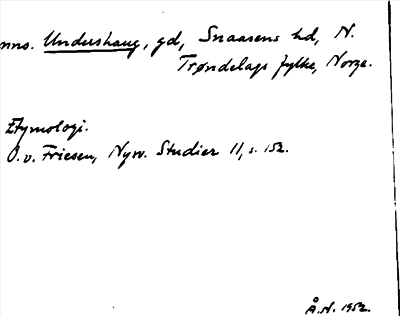 nno. Undershaug, gd, Snaasens hd, N.
Trøndelags fylke, Norge.
Etymologi.
O.v. Friesen, Nyv. Studier II, s. 152.
Å.N. 1952.